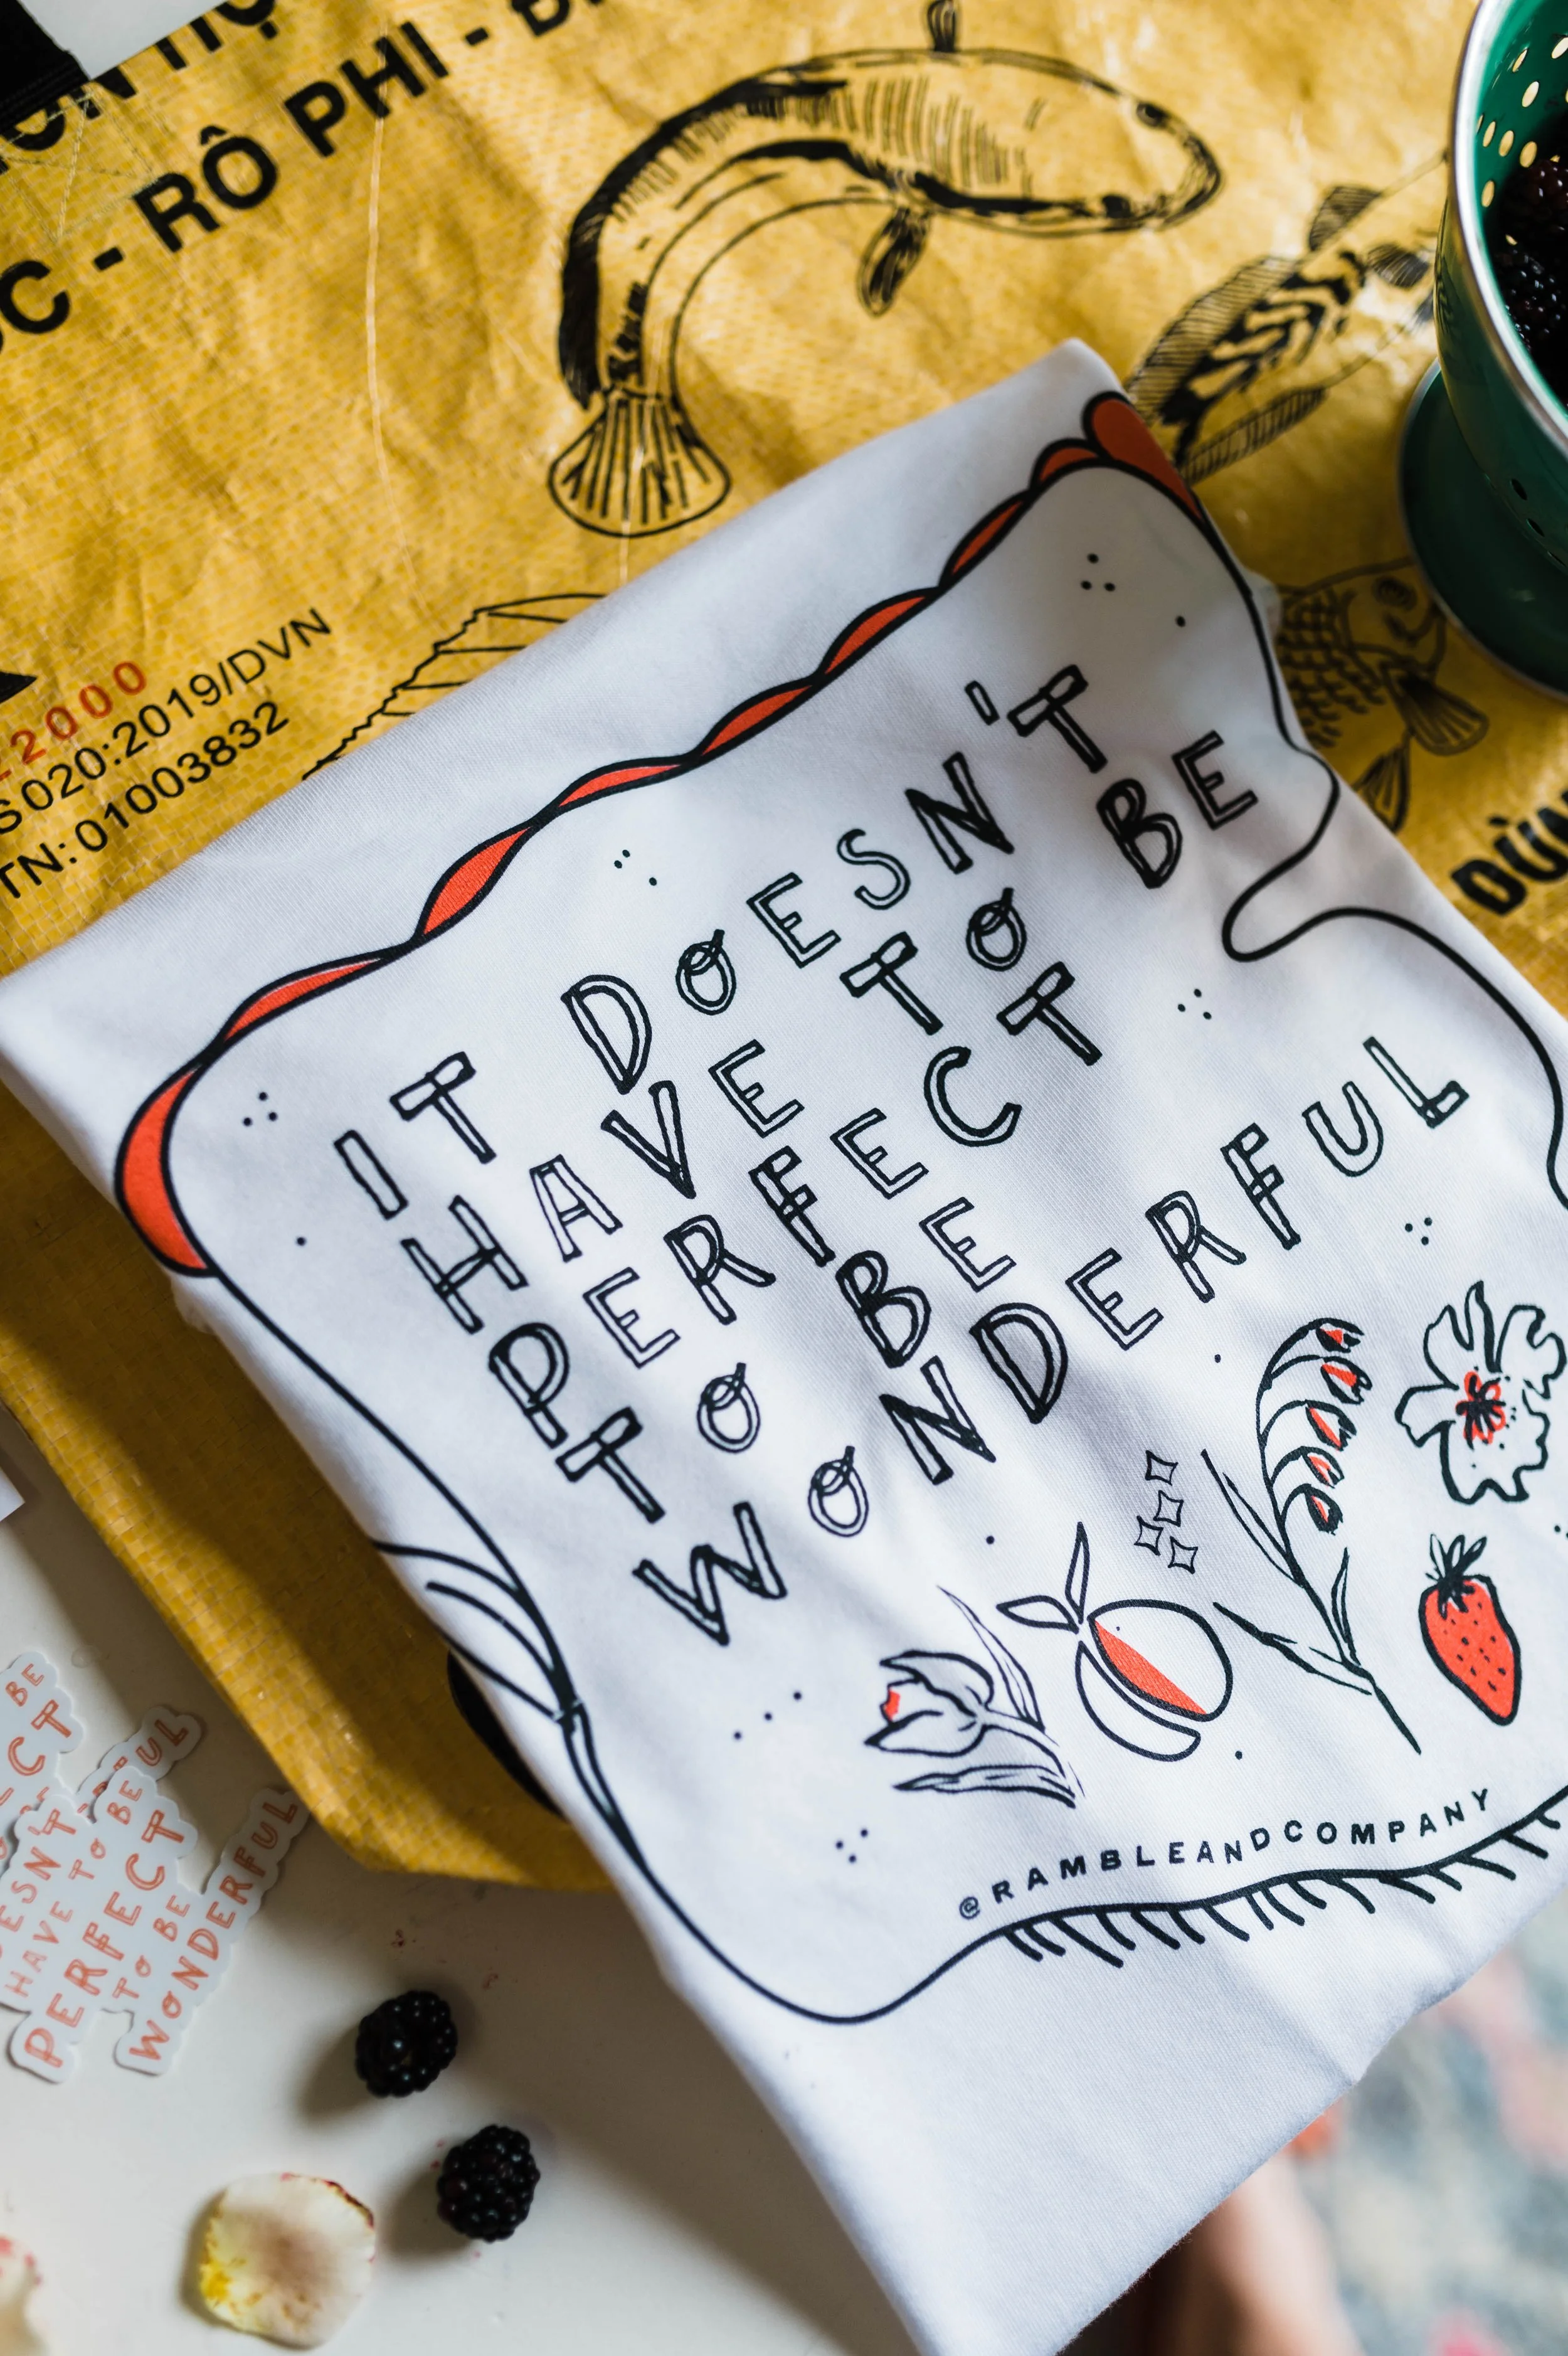 RÔ PHI -
2000
S020:2019/DVN
TN: 01003832
IT DOESN'T
HAVE TO BE
PERFECT
TO BE
WONDERFUL
@RAMBLEANDCOMPANY
BE
HAVE TO BE
PERFECT
TO BE
WONDERFUL